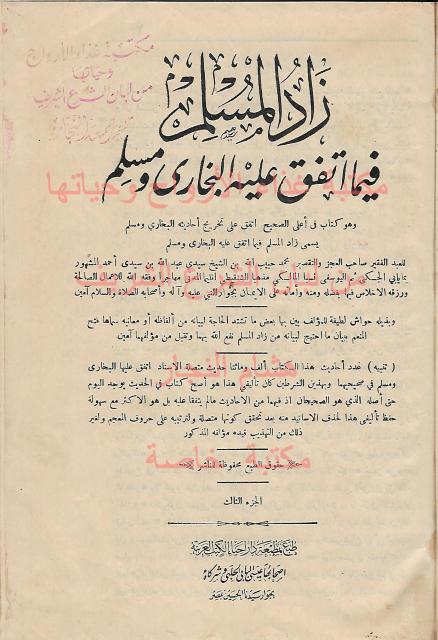 مكتبة غذاء الأرواح
وحياتها
من لبان الشرع الشريف
زاد المسلم
فيما اتفق عليه البخارى ومسلم
مكتبة غذاء الأرواح وحياتها
وهو كتاب فى أعلى الصحيح اتفق على تخريج أحاديثه البخارى ومسلم
يسمى زاد المسلم فيما اتفق عليه البخارى ومسلم
للعبد الفقير صاحب العجز والتقصير محمد حبيب الله بن الشيخ سيدى عبد الله بن سيدى أحمد المشهور
بمايابى الجكنى ثم اليوسفى نسبا المالكى مذهبا الشنقيطى اقليما المدنى مهاجرا وفقه الله للأعمال الصالحة
ورزقه الاخلاص فيها بفضله ومنه وأماته على الايمان بجوار النبى عليه وآله وأصحابه الصلاة والسلام آمين
من لبان الشرع الشريف
وبذيله حواش لطيفة للمؤلف بين بها بعض ما تشتد الحاجة لبيانه من ألفاظه أو معانيه سماها فتح
المنعم ببيان ما احتيج لبيانه من زاد المسلم نفع الله بهما وتقبل من مؤلفهما آمين
هشام النجار
(تنبيه) عدد أحاديث هذا الكتاب ألف ومائتا حديث متصلة الاسناد اتفق عليها البخارى
ومسلم فى صحيحهما وبهذين الشرطين كان تأليفى هذا هو أصح كتاب فى الحديث يوجد اليوم
حتى أصله الذى هو الصحيحان اذ فيهما من الاحاديث مالم يتفقا عليه بل هو الاكثر مع سهولة
حفظ تأليفى هذا لحذف الاسانيد منه بعد تحقق كونها متصلة ولترتيبه على حروف المعجم ولغير
ذلك من التهذيب قيده مؤلفه المذكور
مكتبة خاصة
حقوق الطبع محفوظة للناشر
الجزء الثالث
طبع بمطبعة دار إحياء الكتب العربية
أصحابها عيسى البابى الحلبى وشركاؤه
بجوار سيدنا الحسين بمصر